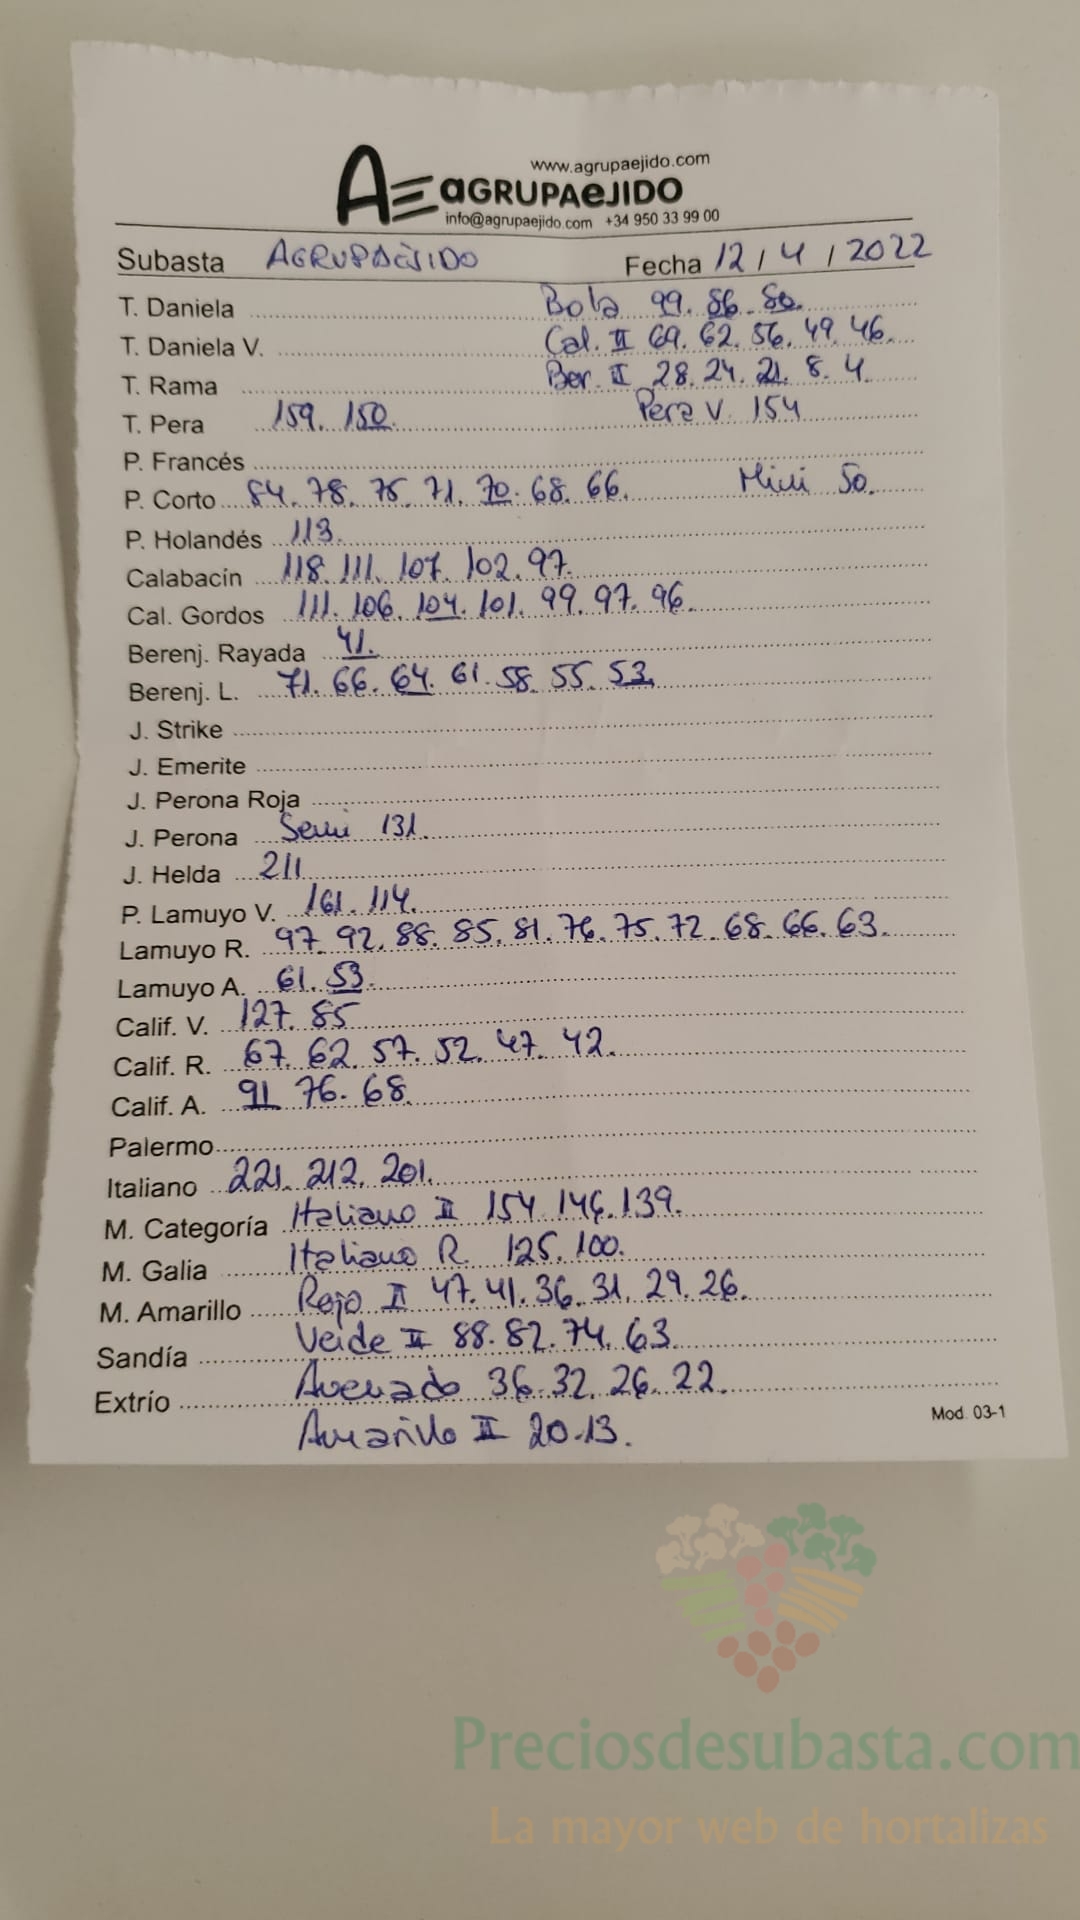 www.agrupaejido.com
AE aGRUPAeJIDO
info@agrupaejido.com +34 950 33 99 00
Subasta AGRUPAEJIDO Fecha 12 / 4 / 2022
T. Daniela Bola 99. 86. 80.
T. Daniela V. Cal. II 69. 62. 56. 49. 46.
T. Rama Ber. II 28. 24. 21. 8. 4.
T. Pera 159. 150. Pera V. 154
P. Francés
P. Corto 84. 78. 75. 71. 70. 68. 66. Mini 50.
P. Holandés 113.
Calabacín 118. 111. 107. 102. 97.
Cal. Gordos 111. 106. 104. 101. 99. 97. 96.
Berenj. Rayada 41.
Berenj. L. 71. 66. 64. 61. 58. 55. 53.
J. Strike
J. Emerite
J. Perona Roja
J. Perona Semi 131.
J. Helda 211
P. Lamuyo V. 161. 114.
Lamuyo R. 97. 92. 88. 85. 81. 76. 75. 72. 68. 66. 63.
Lamuyo A. 61. 53.
Calif. V. 127. 85
Calif. R. 67. 62. 57. 52. 47. 42.
Calif. A. 91 76. 68.
Palermo
Italiano 221. 212. 201.
M. Categoría Italiano II 154. 146. 139.
M. Galia Italiano R. 125. 100.
M. Amarillo Rojo II 47. 41. 36. 31. 29. 26.
Sandía Verde II 88. 82. 74. 63.
Extrío Asurado 36. 32. 26. 22.
Amarillo II 20. 13.
Mod. 03-1
Preciosdesubasta.com
La mayor web de hortalizas